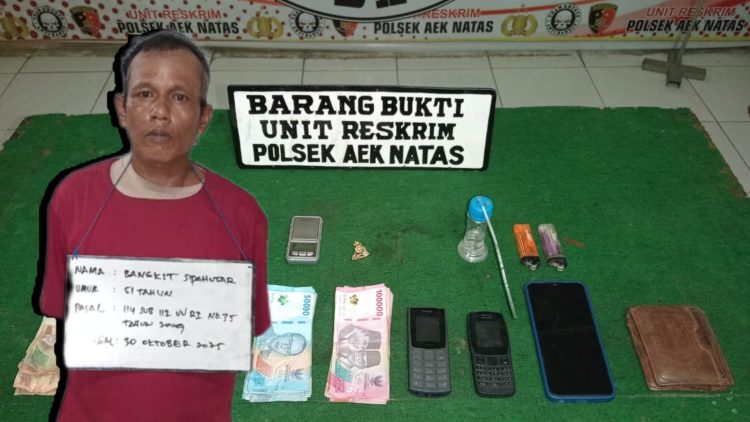 UNIT RESKRIM
POLSEK AEK NATAS
UNIT RESKRIM
POLSEK AEK NATAS
UNIT RESKRIM
POLSEK AEK NATAS
BARANG BUKTI
UNIT RESKRIM
POLSEK AEK NATAS
NAMA : BANGKIT SIPAHUTAR
UMUR : 51 TAHUN
PASAL : 114 SUB 112 UU RI NO.35
TAHUN 2009
GAL: 30 OKTOBER 2025
50000
100000